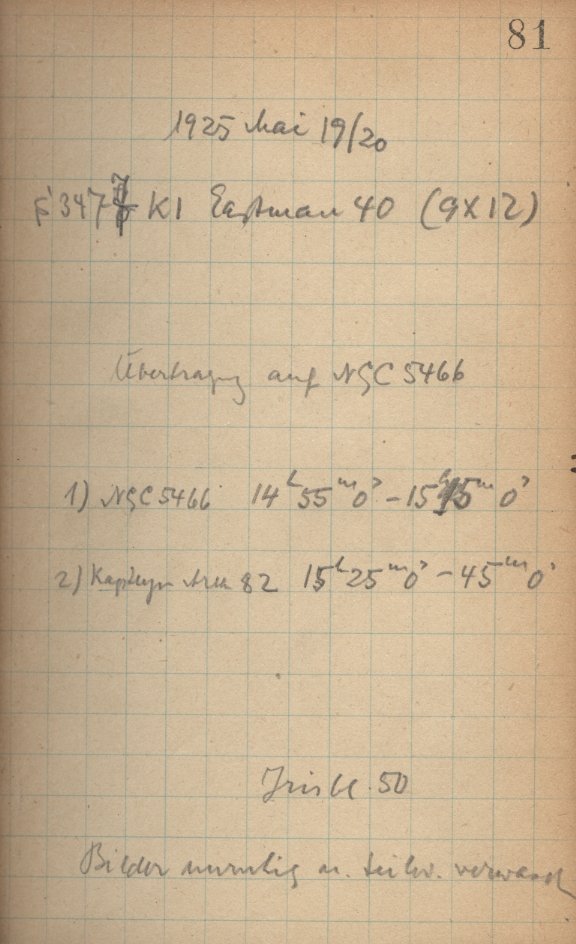 81
1925 Mai 19/20
F 3477 K1 Eastman 40 (9X12)
Übertragung auf NGC 5466
1) NGC 5466 14h 55m 0s – 15h 15m 0s
2) Kapteyn Area 82 15h 25m 0s – 45m 0s
Irisbl. 50
Bilder unruhig u. teilw. verwasch